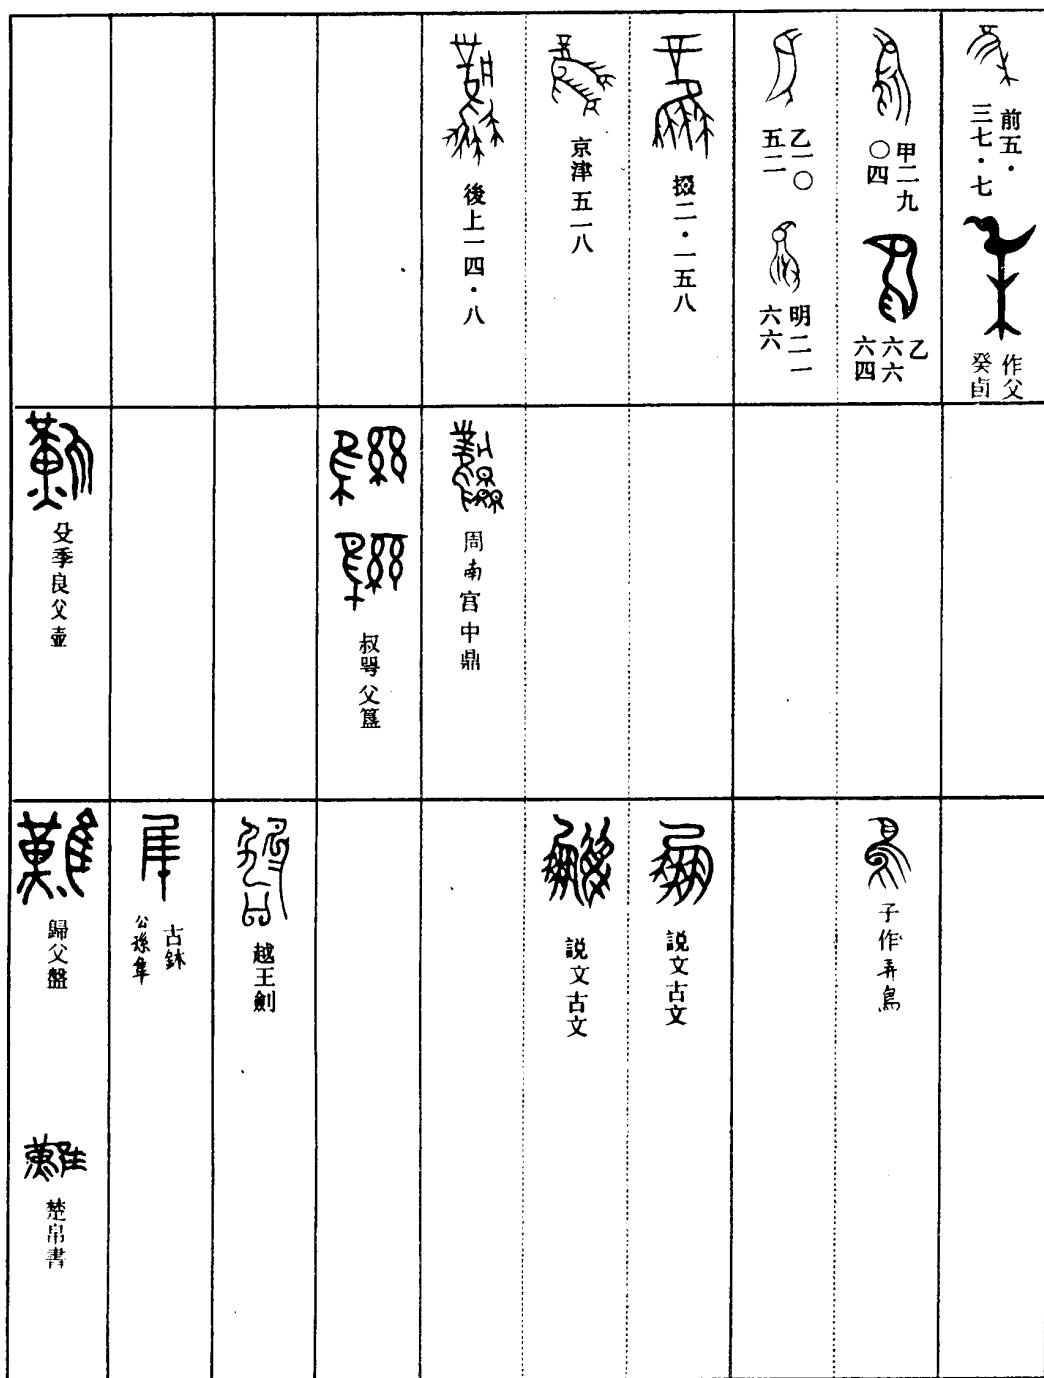 前五·
三七·七
作父
癸卣
甲二九
〇四
乙
六六
六四
乙一〇
五二
明二一
六六
掇二·一五八
京津五一八
後上一四·八
周南宫中鼎
叔㝬父簋
殳季良父壶
子作弄鳥
説文古文
説文古文
越王劍
古鉥
公孫隼
歸父盤
楚帛書